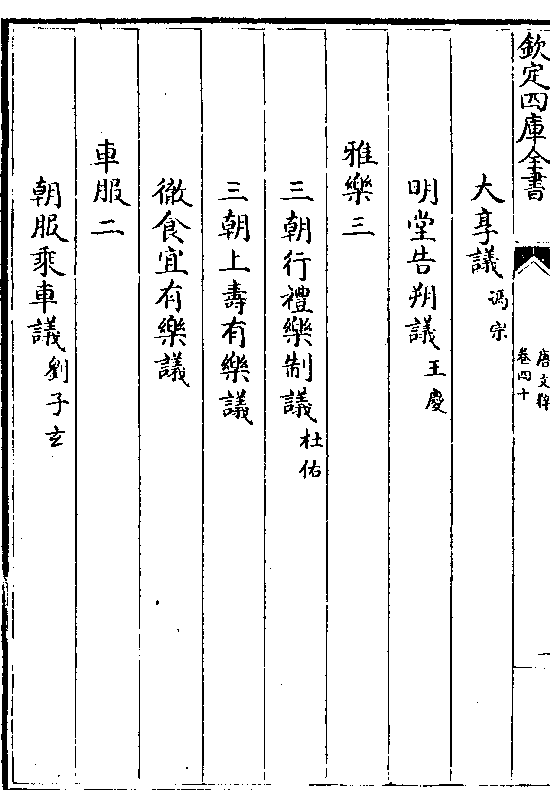 欽定四庫全書
唐文粹
卷四十
一
大享議馮宗
明堂告朔議王慶
雅樂三
三朝行禮樂制議杜佑
三朝上壽有樂議
徹食宜有樂議
車服二
朝服乘車議劉子玄